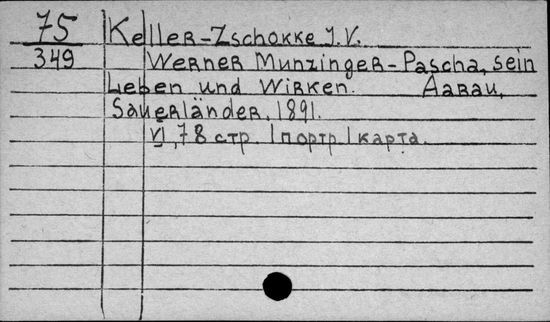 75 Keller-Zschokke J.V.
349 Werner Munzinger-Pascha, sein
Leben und Wirken. Aarau,
Sauerländer, 1891.
VI, 78 стр. 1 портр. 1 карта.